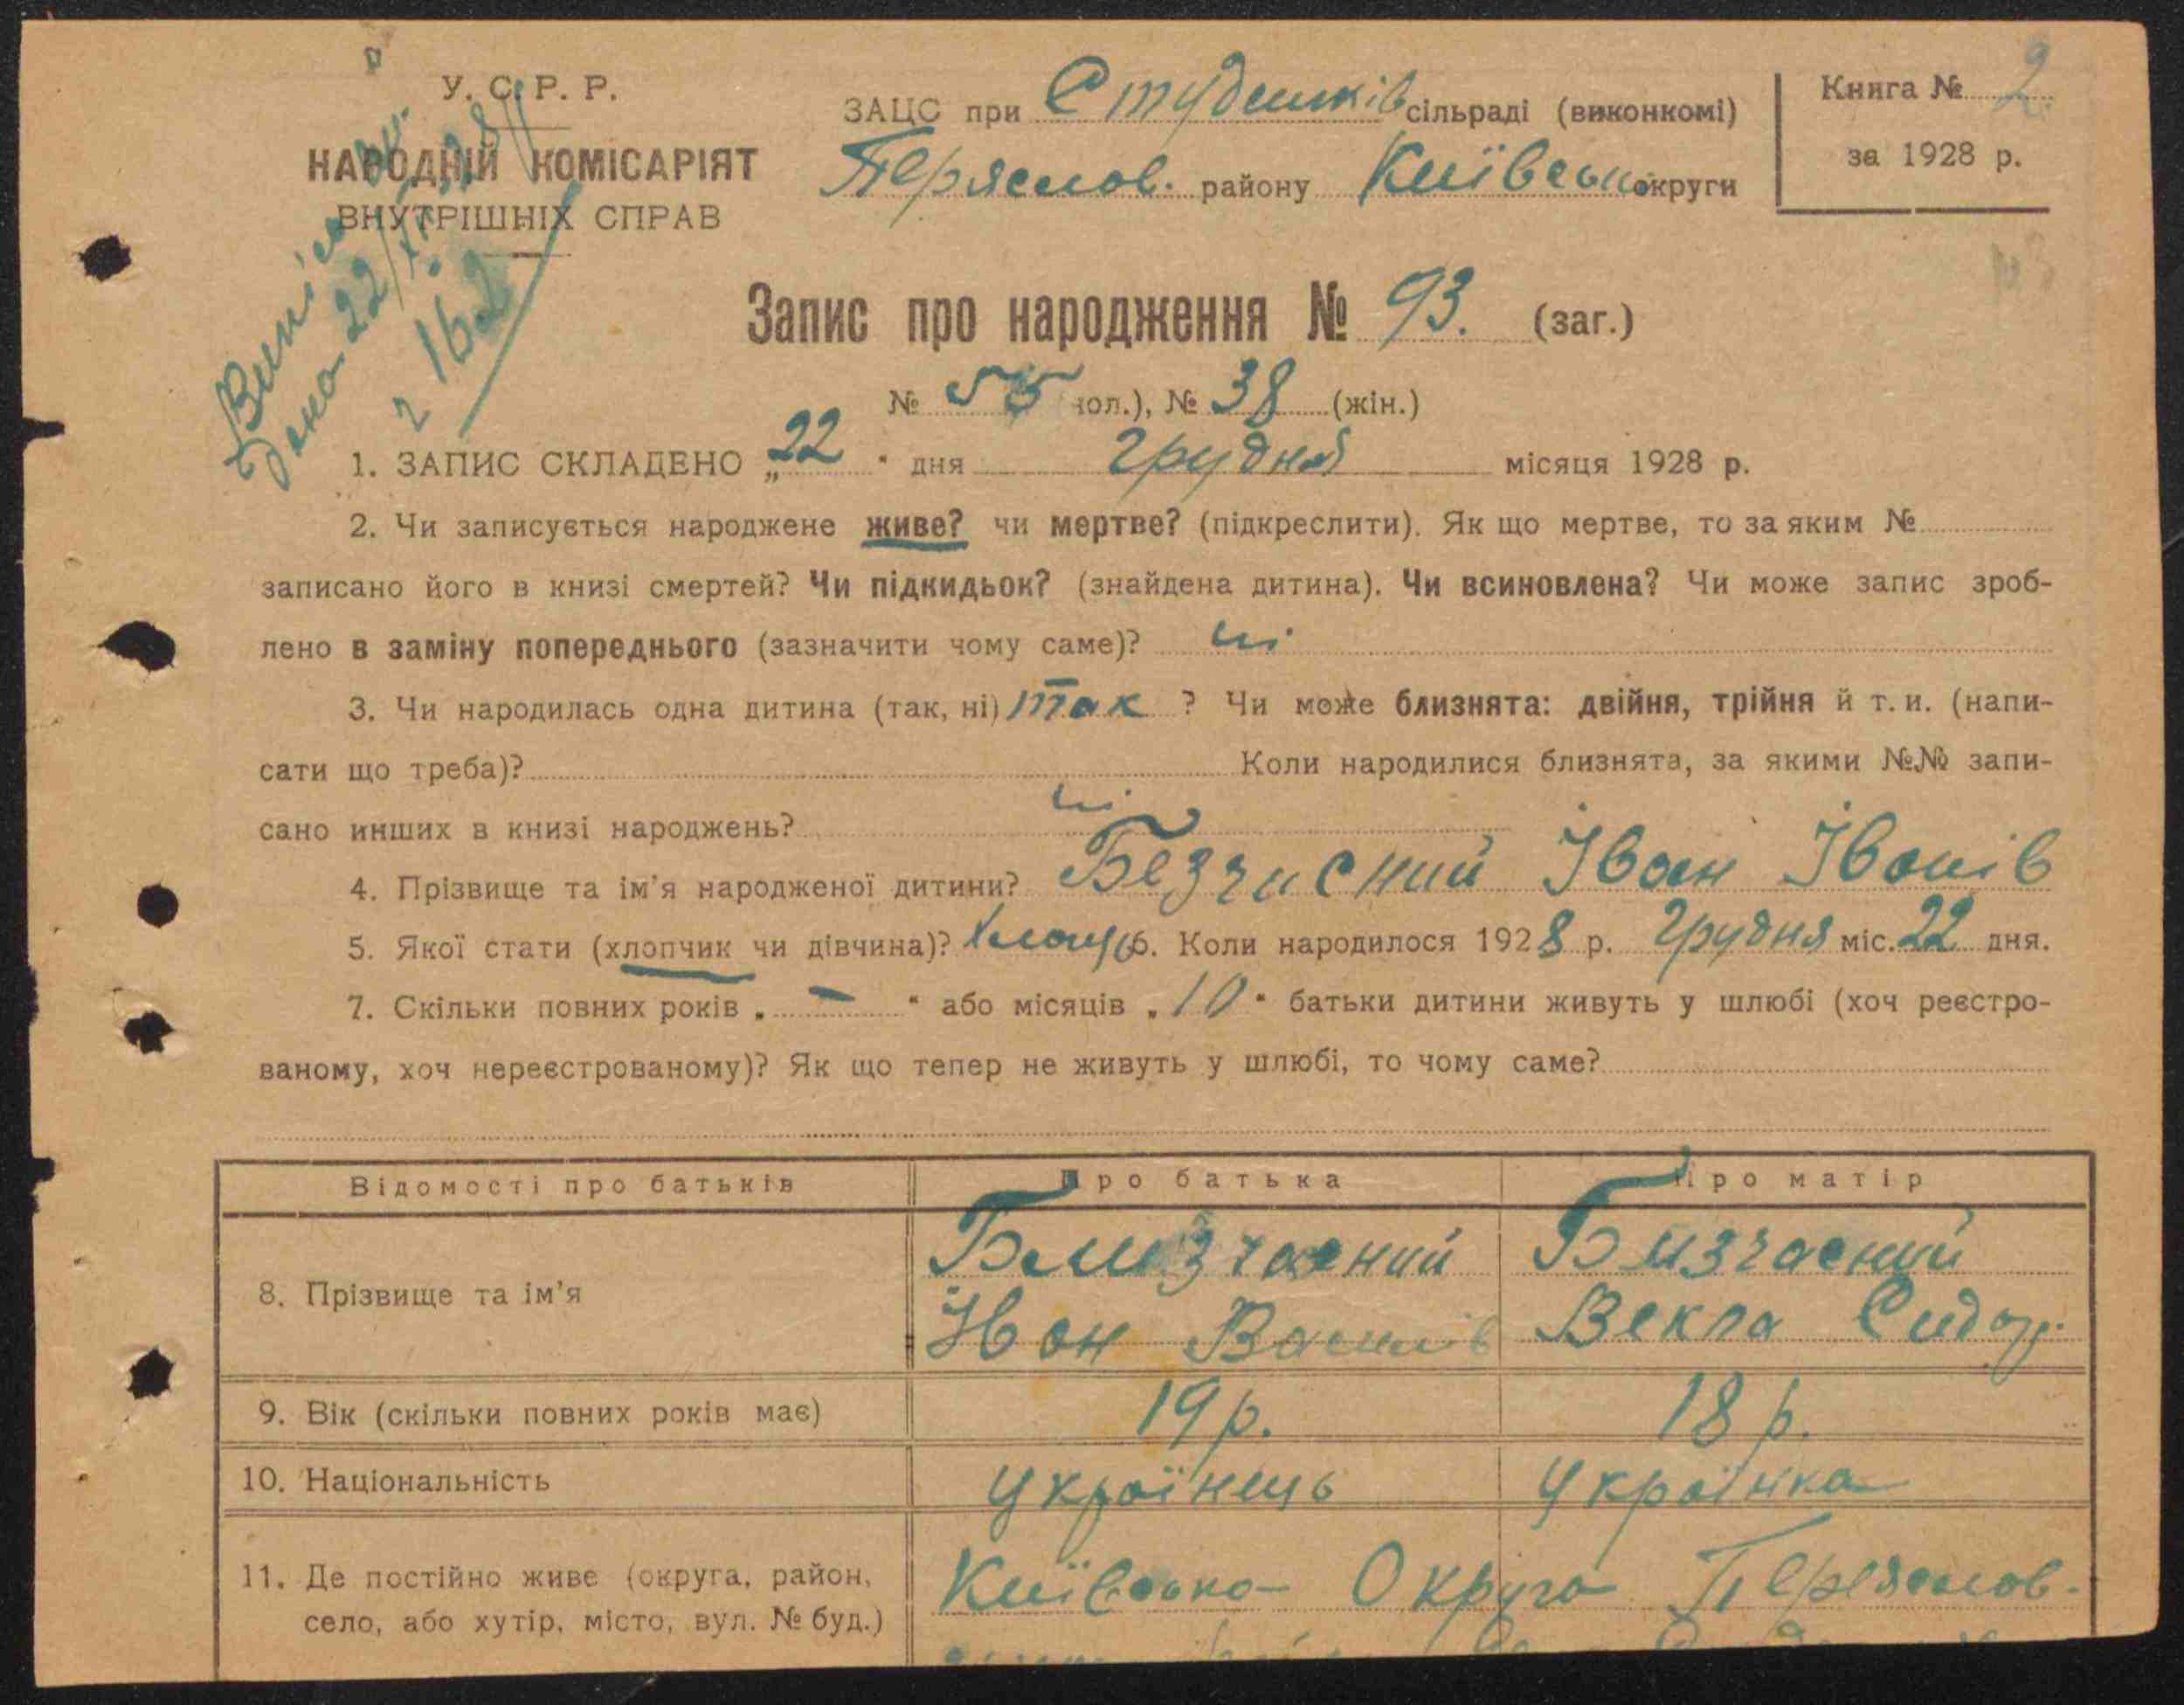 У. С. Р. Р.
НАРОДНІЙ КОМІСАРІЯТ
ВНУТРІШНІХ СПРАВ
ЗАЦС при Студеників сільраді (виконкомі)
Переяслов. району Київської округи
Книга № 2.
за 1928 р.
22/XII 28
162
Запис про народження № 93. (заг.)
№ 55 чол.), № 38 (жін.)
1. ЗАПИС СКЛАДЕНО „22" дня грудня місяця 1928 р.
2. Чи записується народжене живе? чи мертве? (підкреслити). Як що мертве, то за яким №
записано його в книзі смертей? Чи підкидьок? (знайдена дитина). Чи всиновлена? Чи може запис зроб-
лено в заміну попереднього (зазначити чому саме)? ні
3. Чи народилась одна дитина (так, ні) так ? Чи може близнята: двійня, трійня й т. и. (напи-
сати що треба)? Коли народилися близнята, за якими №№ запи-
сано инших в книзі народжень? ні
4. Прізвище та ім'я народженої дитини? Безчасний Іван Іванів
5. Якої стати (хлопчик чи дівчина)? хлопч 6. Коли народилося 1928 р. грудня міс. 22 дня.
7. Скільки повних років „ — " або місяців „10" батьки дитини живуть у шлюбі (хоч реєстро-
ваному, хоч нереєстрованому)? Як що тепер не живуть у шлюбі, то чому саме?
Відомості про батьків Про батька Про матір
8. Прізвище та ім'я
Безчасний Бизчасний
Іван Василів Векла Сидор.
9. Вік (скільки повних років має) 19 р. 18 р.
10. Національність Українець Українка
11. Де постійно живе (округа, район,
село, або хутір, місто, вул. № буд.)
Київська Округа Переяслов-